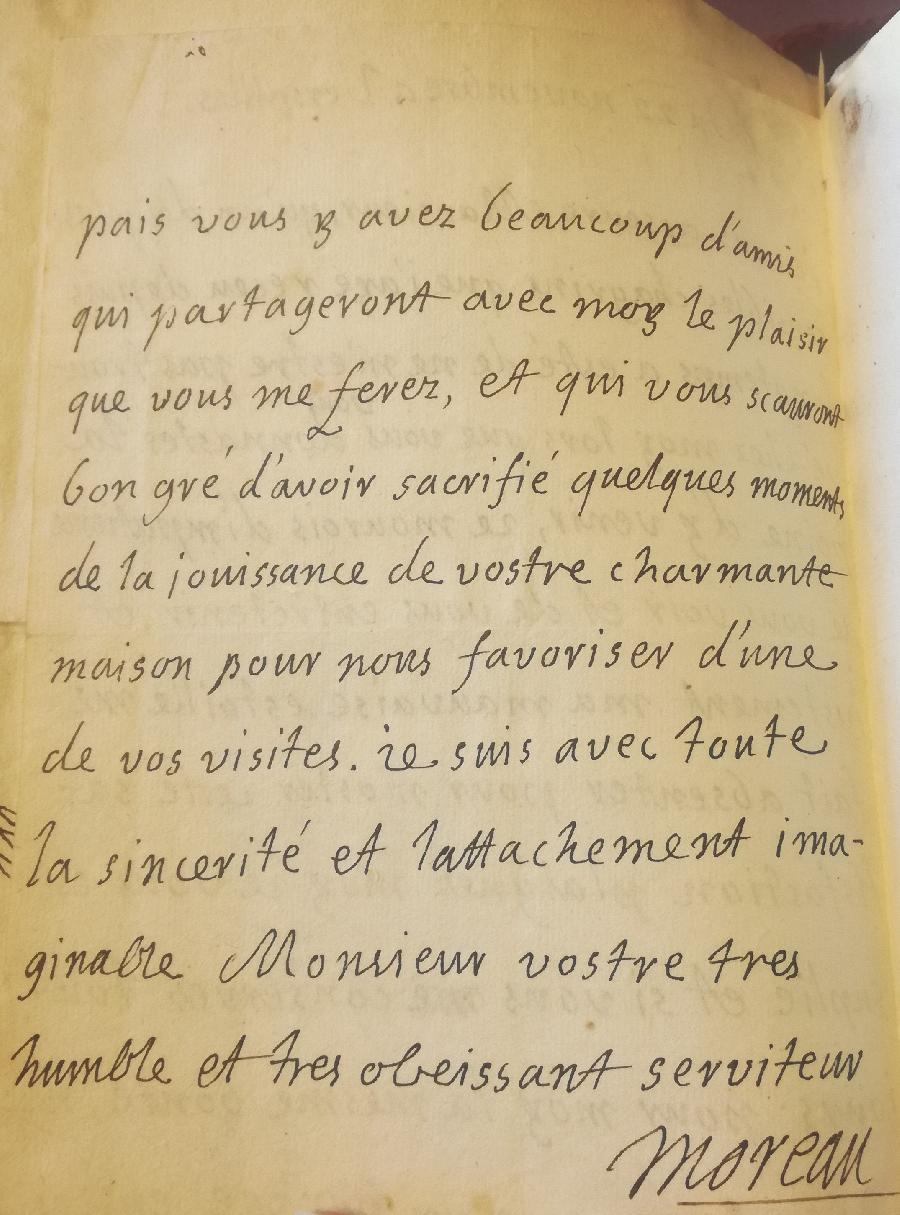 pais vous y avez beaucoup d'amis
qui partageront avec moy le plaisir
que vous me ferez, et qui vous scauront
bon gré d'avoir sacrifié quelques moments
de la jouissance de vostre charmante
maison pour nous favoriser d'une
de vos visites. ie suis avec toute
la sincerité et lattachement ima-
ginable Monsieur vostre tres
humble et tres obeissant serviteur
Moreau